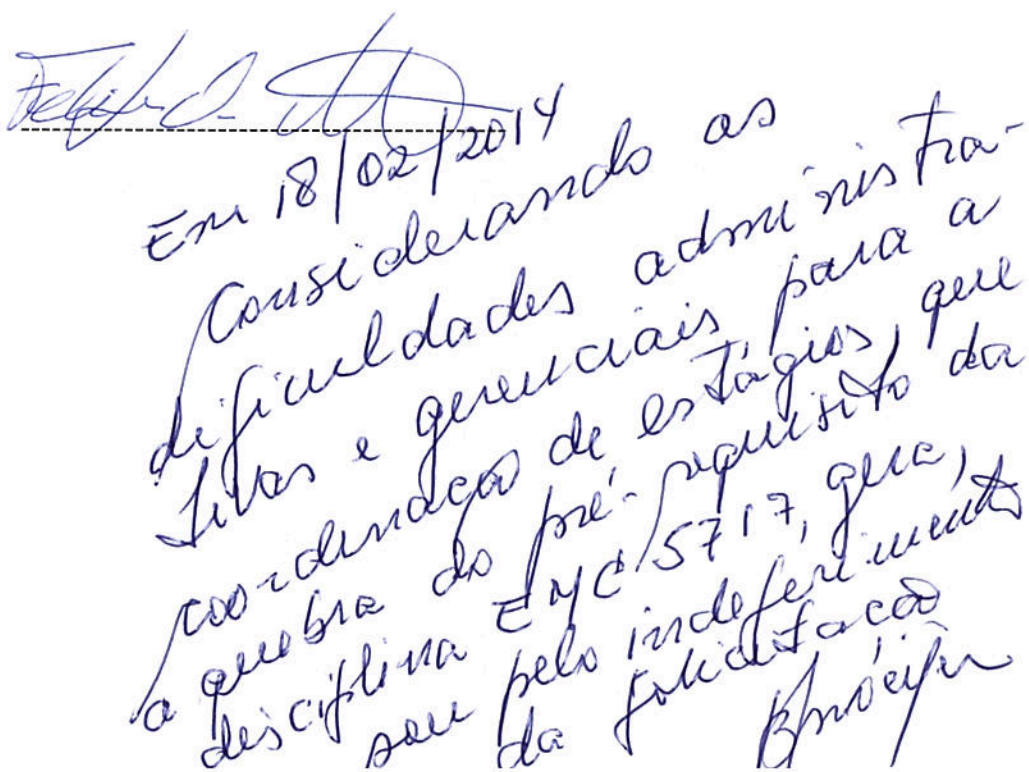 Em 18/02/2014
Considerando as
dificuldades administra-
tivas e gerenciais para a
coordenação de estágios, que
a quebra do pré-requisito da
disciplina EMC 5717, gera,
sou pelo indeferimento
da solicitação